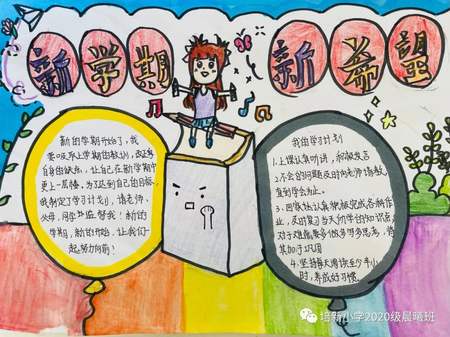 新学期 新希望
新的学期开始了，我
要吸取上学期的教训，改正
自身的缺点，让自己在新学期中
更上一层楼，为了达到自己的目标，
我制定了学习计划，请老师、
父母、同学监督我！新的
学期，新的开始，让我们一
起努力向前！
我的学习计划
1.上课认真听讲，积极发言
2.不会的问题及时向老师请教，
直到学会为止。
3.回家我认真积极完成各种作
业，及时复习当天所学的知识点，
对于难题要多做多思考，将
其加于巩固
4.坚持每天阅读至少半小
时，养成好习惯。
培新小学2020级晨曦班